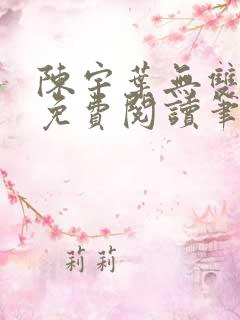 陳宇葉無雙
免費閱讀筆
莉莉